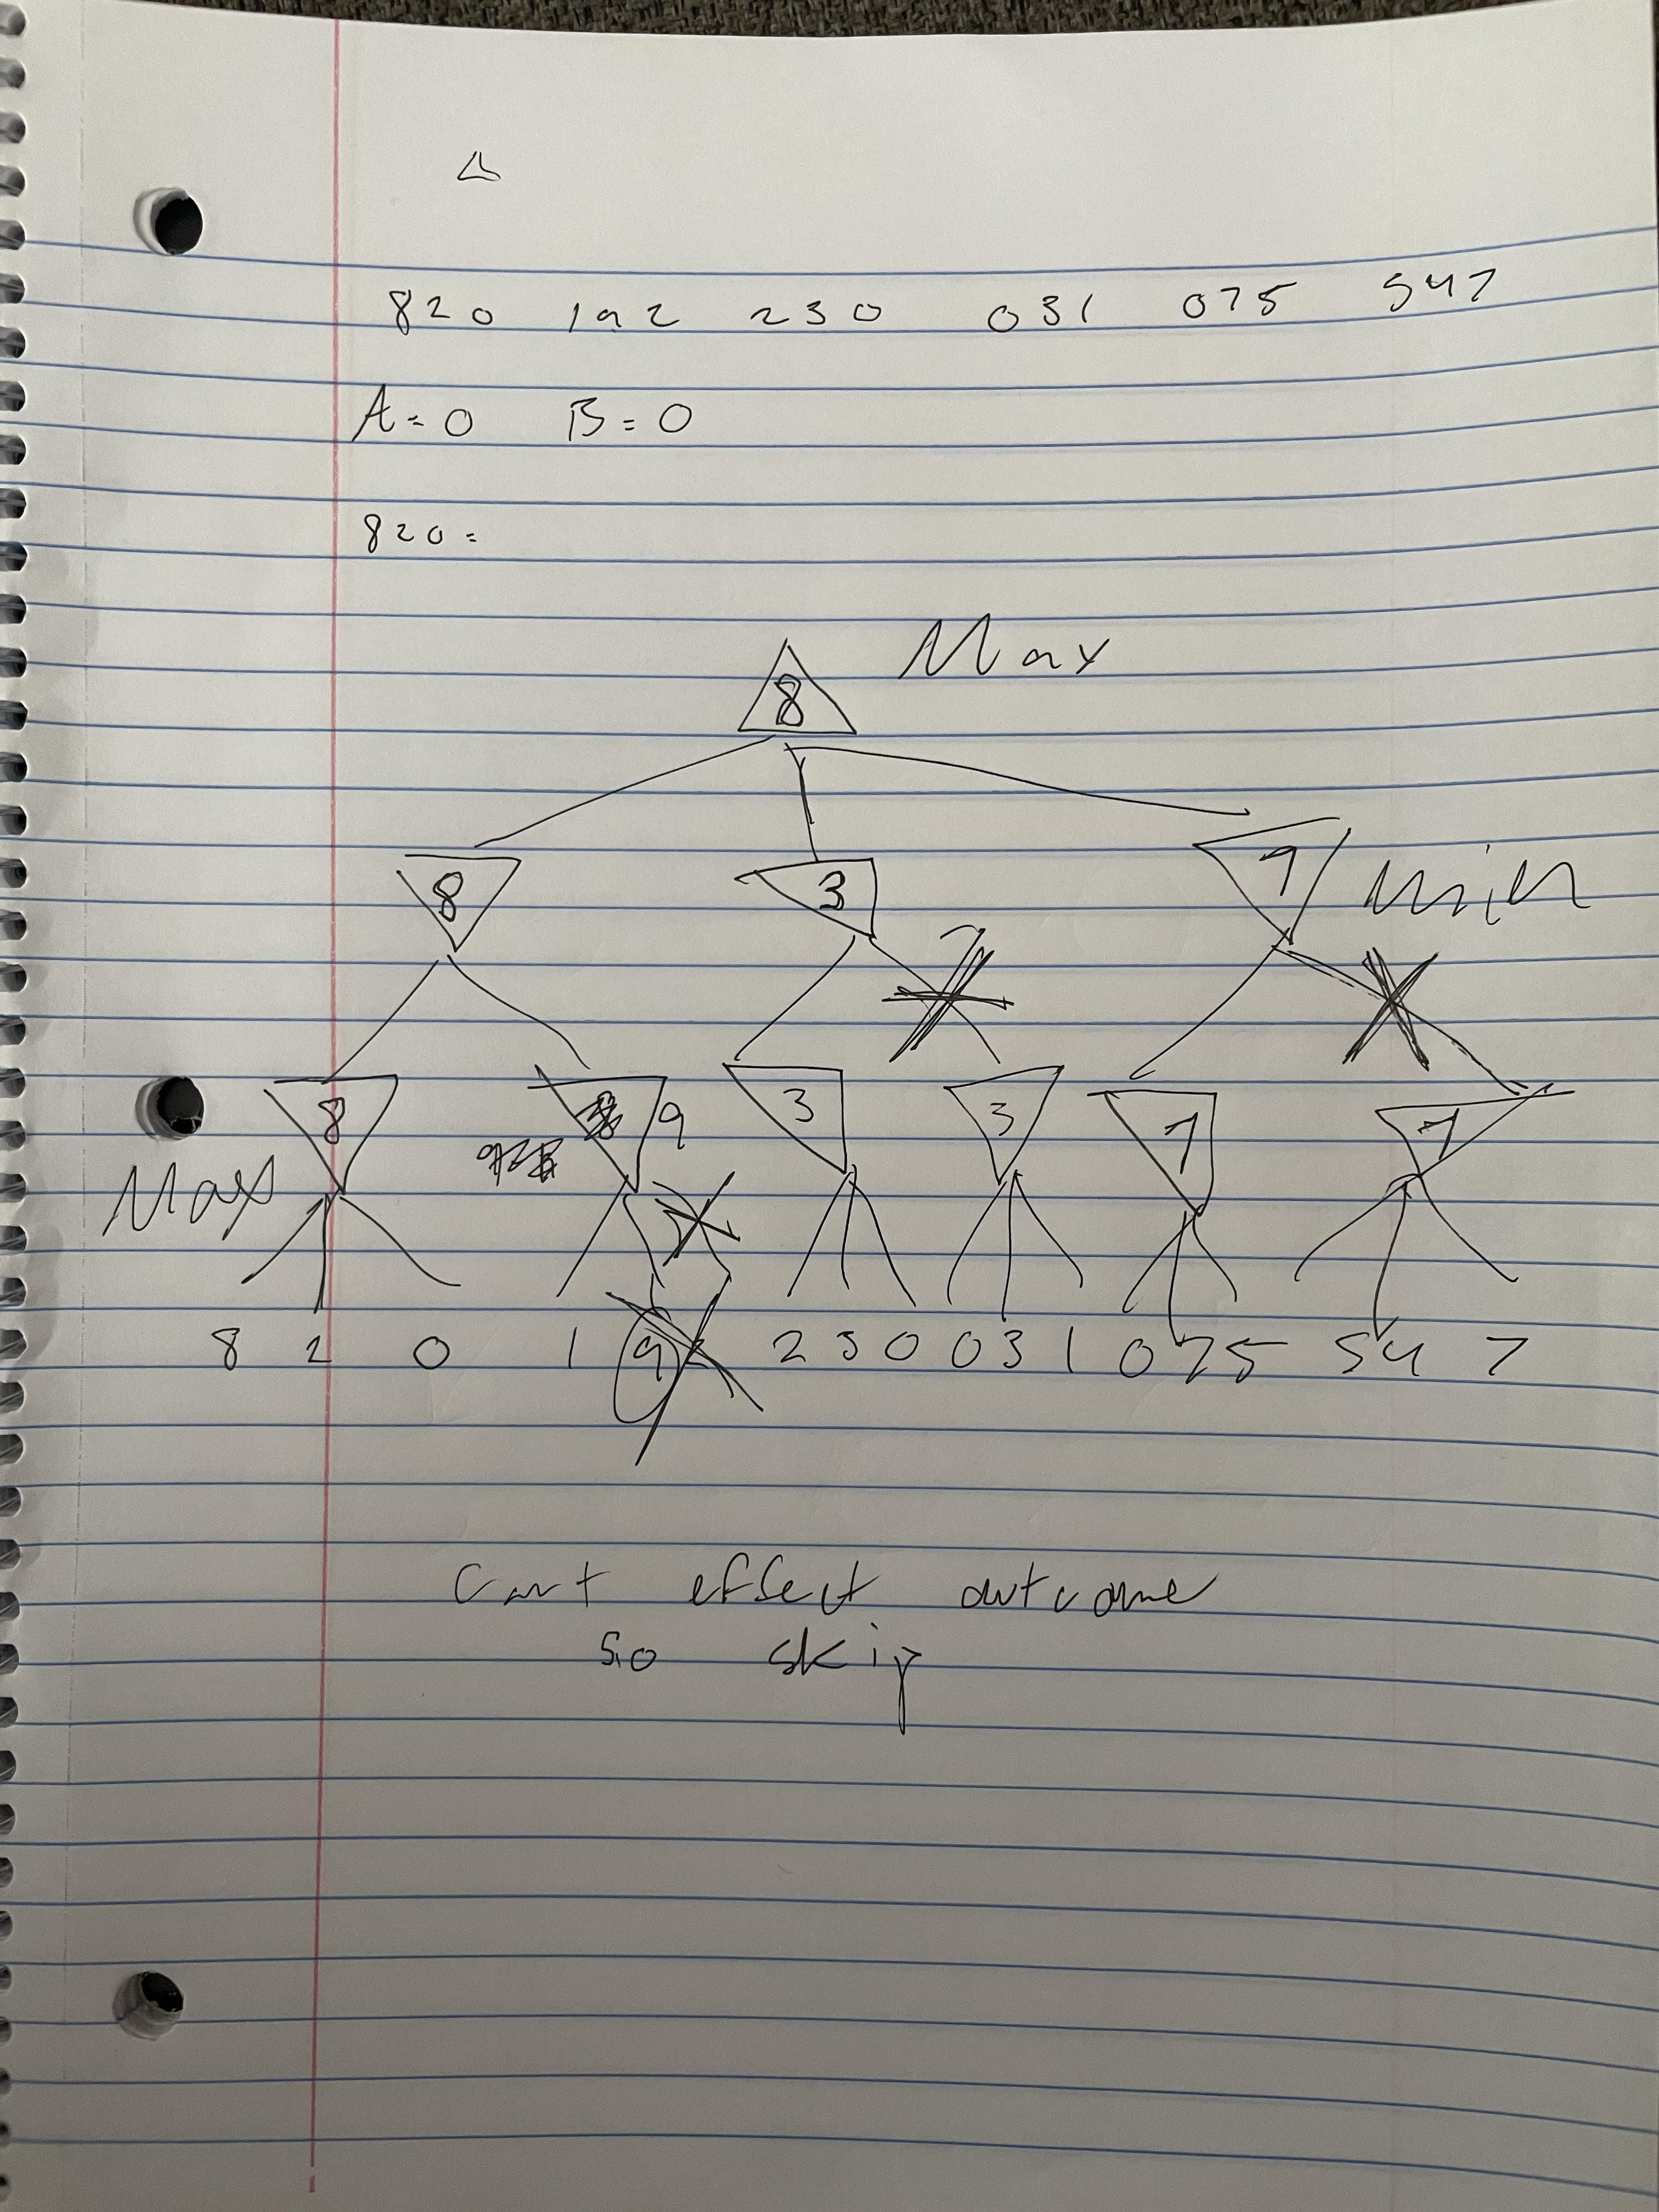 820 192 230 031 075 547
A=0 B=0
820=
8 Max
8 3 7 Min
8 9 3 3 7 7
Max
8 2 0 1 9 2 3 0 0 3 1 0 7 5 5 4 7
Cant effect outcome
so skip